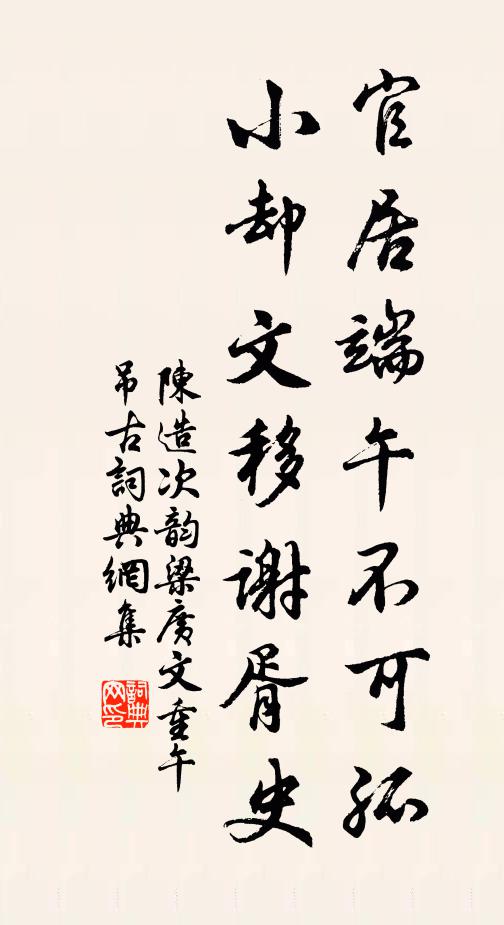 官居端午不可孤
小却文移谢胥史
陳造次韵梁廣文重午
吊古詞典網集
詞典网印